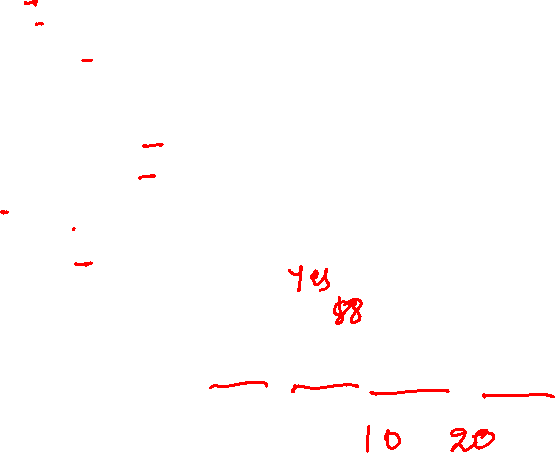 Yes
$8
10 20